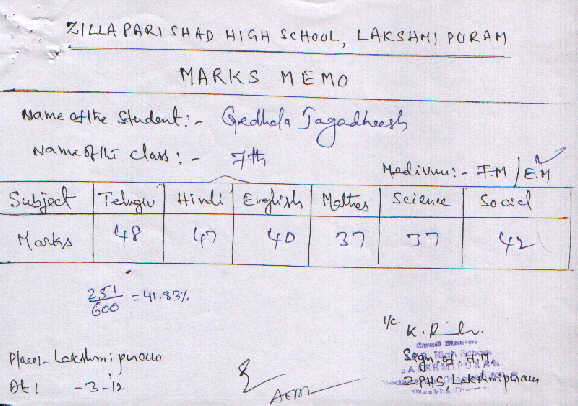 ZILLA PARISHAD HIGH SCHOOL, LAKSHMIPURAM
MARKS MEMO
Name of the Student:- Gedhela Jagadheesh
Name of the class:- 7th
Medium:- T.M / E.M
Subject Telugu Hindi English Mathes Science Social
Marks 48 47 40 37 37 42
251/600 = 41.83%
I/c
Place:- Lakshmipuram Sign. of H.M
Dt: -3-12 ZPHS, Lakshmipuram